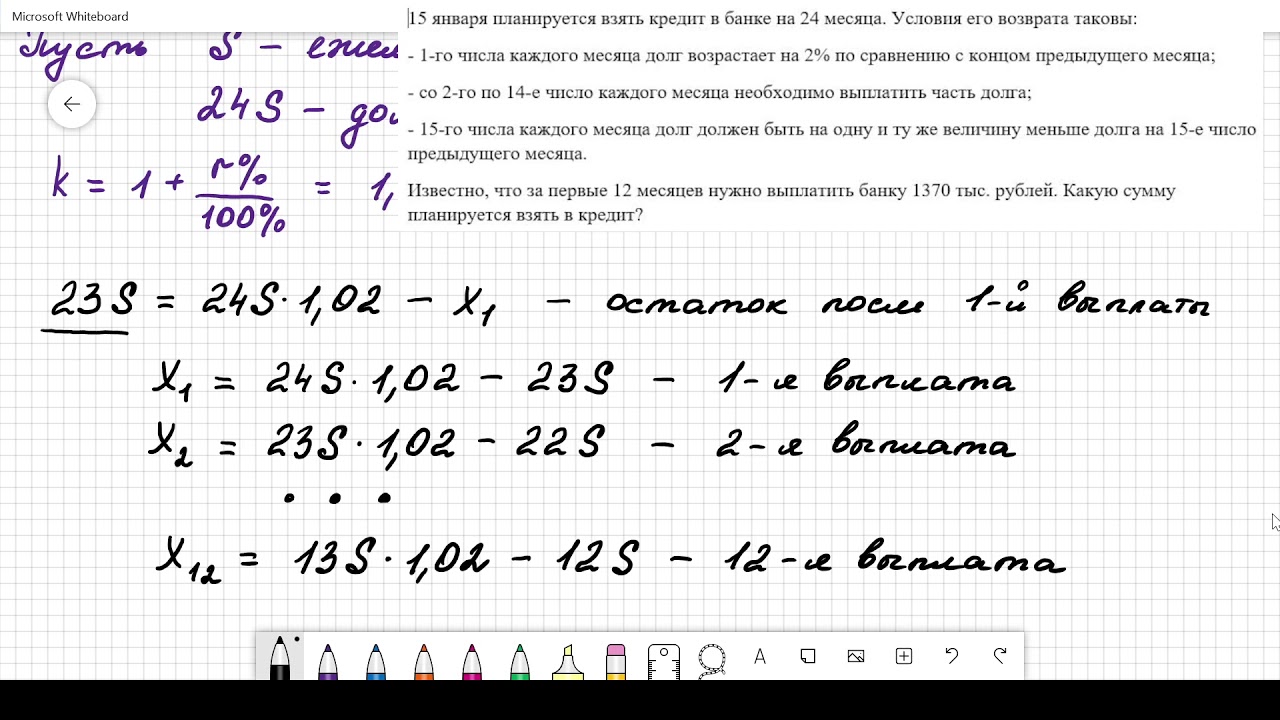 Microsoft Whiteboard
15 января планируется взять кредит в банке на 24 месяца. Условия его возврата таковы:
- 1-го числа каждого месяца долг возрастает на 2% по сравнению с концом предыдущего месяца;
- со 2-го по 14-е число каждого месяца необходимо выплатить часть долга;
- 15-го числа каждого месяца долг должен быть на одну и ту же величину меньше долга на 15-е число
предыдущего месяца.
Известно, что за первые 12 месяцев нужно выплатить банку 1370 тыс. рублей. Какую сумму
планируется взять в кредит?
Пусть S –
24S –
k = 1 + r%/100% = 1,
23S = 24S · 1,02 – x₁ – остаток после 1-й выплаты
x₁ = 24S · 1,02 – 23S – 1-я выплата
x₂ = 23S · 1,02 – 22S – 2-я выплата
• • •
x₁₂ = 13S · 1,02 – 12S – 12-я выплата
A